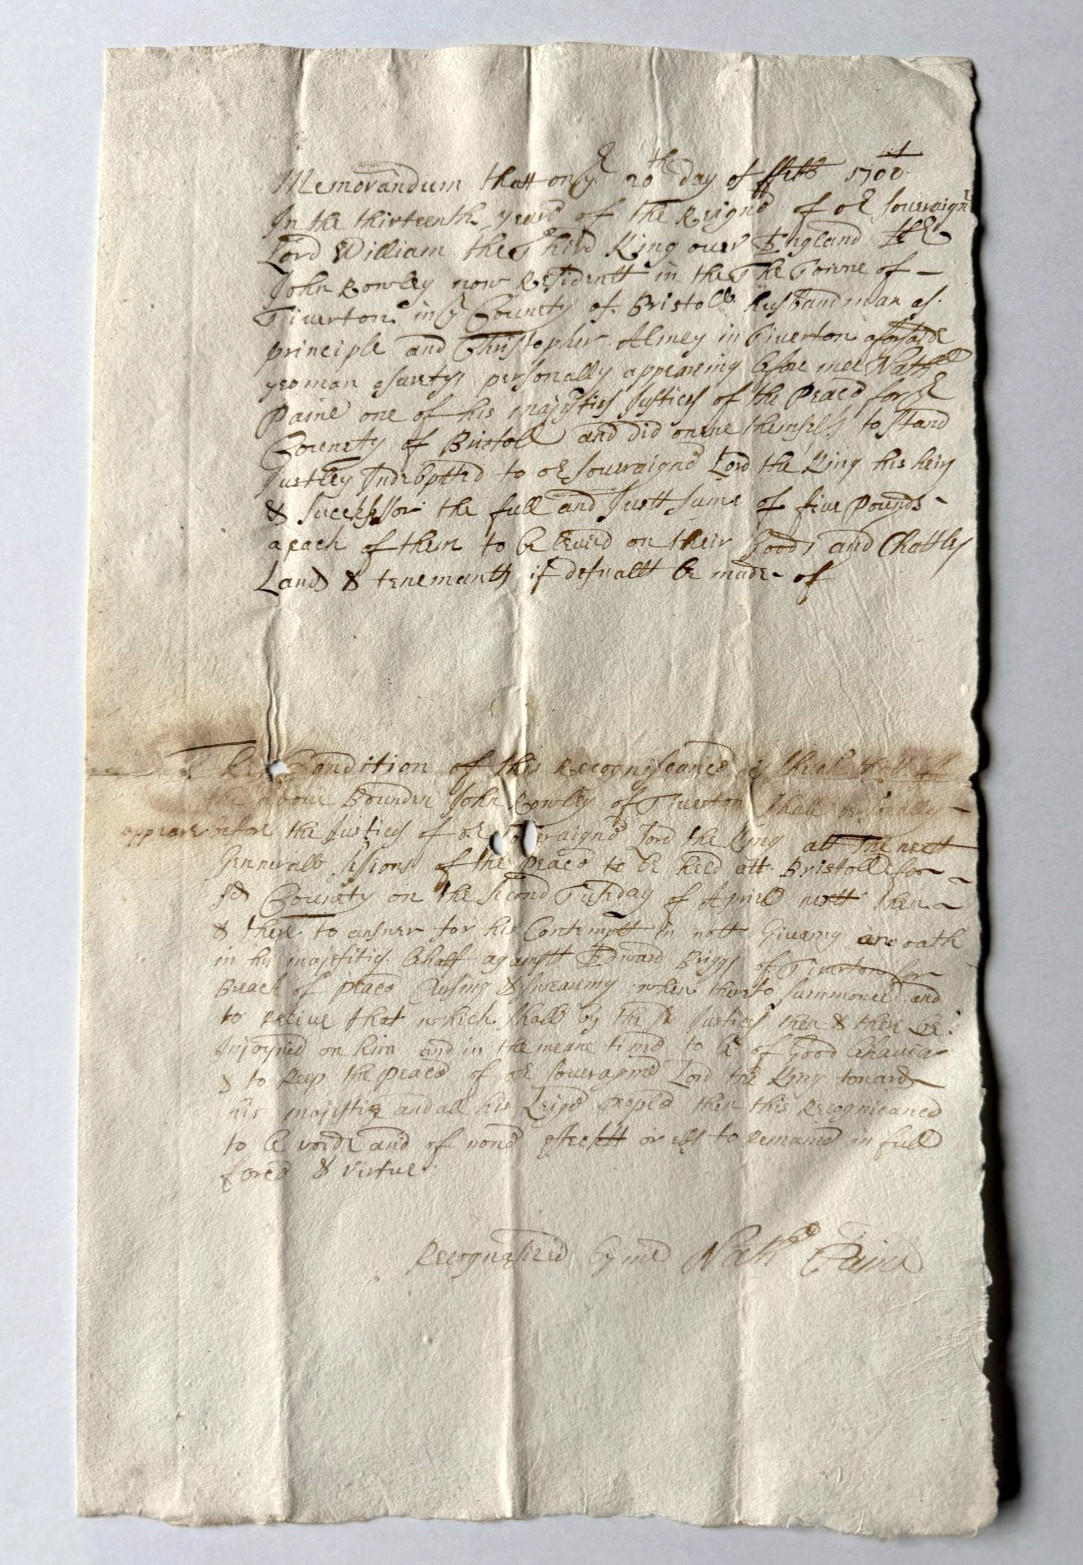 Memorandum thatt on ye 20th day of ffeb 1700
In the thirteenth yeare of the Reigne of or Soveraigne
Lord William the Third King over England &c
John Rowley now Residentt in the The Towne of -
Tiverton in ye County of Bristoll husbandman as
principle and Christopher Almey in Tiverton aforsaide
yeoman suretys personally appearing before mee Nathll
Paine one of his majesties Justices of the Peace for ye
County of Bristoll and did owne themselfs to stand
Justley Indebtted to or Soveraigne Lord the King his heirs
& successor the full and Justt sume of five Pounds -
apeach of them to be levied on their Goods and Chattles
Lands & tenemants if defuallt be made - of
The Condition of this Recogniseance is
the above Bounden John Rowley of Tiverton shall personally -
appeare before the Justices of or Soveraigne Lord the King att The nextt
Jennerall sessions of the peace to be held att Bristoll for -
sd County on the second Tusday of Aprill nextt then -
& there to answer for his Contemptt in nott Giveing ane oath
in his majestties behalf againstt Edward Briggs of Tiverton for
Breach of peace Cursing & Sweareing when thereto summoned and
to Receive that which shall by the sd Justices then & there be
Injoyned on him and in the meane time to be of Good behavior
& to keep the peace of or Soveraigne Lord the King towards
his majesttie and all his Leige people then this Recogniceance
to be voide and of none effectt or els to Remaine in full
force & virtue:
Recognasized by me Nathll Paine